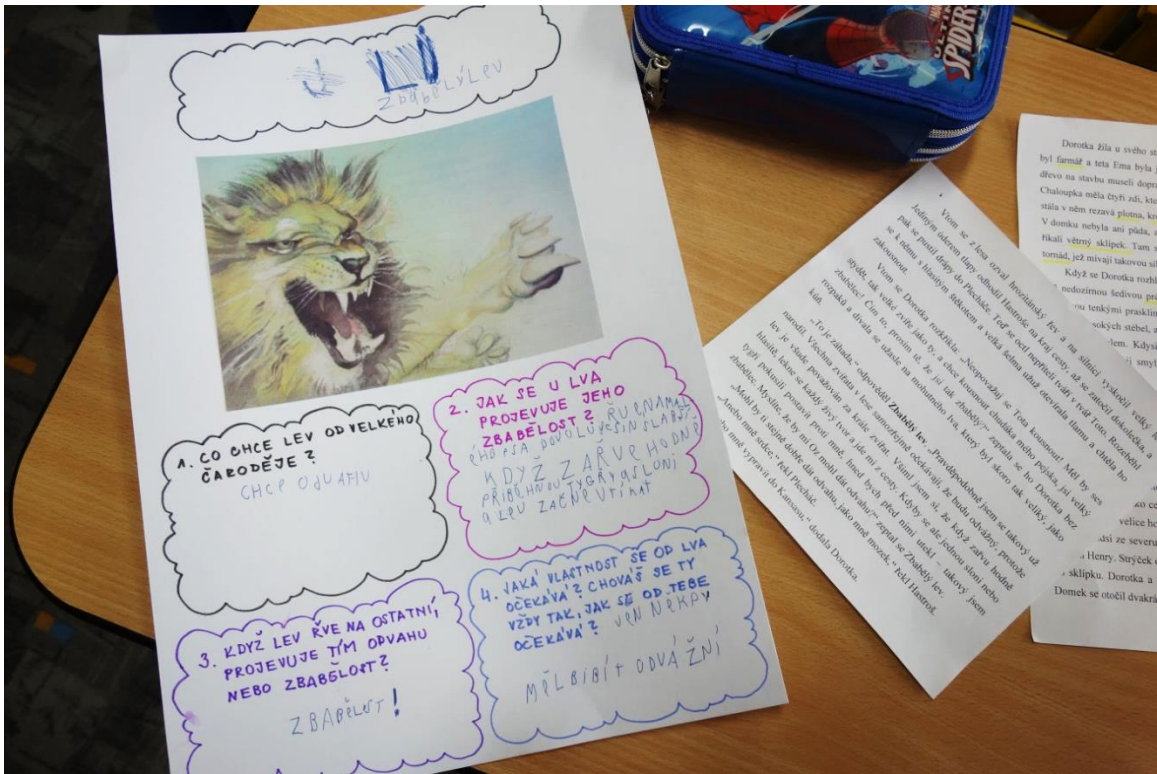 Zbabělý Lev
1. CO CHCE LEV OD VELKÉHO
ČARODĚJE?
CHCE ODVAHU
2. JAK SE U LVA
PROJEVUJE JEHO
ZBABĚLOST?
KDYŽ ZAŘVE HODNĚ
PŘIBĚHNOU TYGRY A SLONI
A LEV ZAČNE UTÍKAT
3. KDYŽ LEV ŘVE NA OSTATNÍ,
PROJEVUJE TÍM ODVAHU
NEBO ZBABĚLOST?
ZBABĚLOST!
4. JAKÁ VLASTNOST SE OD LVA
OČEKÁVÁ? CHOVÁŠ SE TY
VŽDY TAK, JAK SE OD TEBE
OČEKÁVÁ?
MĚL BI BÍT ODVÁŽNÍ
SPIDER
Vtom se z lesa ozval hrozitánský řev a na silnici vyskočil velký
Jediným úderem tlapy odhodil Hastroše na kraj cesty, až se zatočil dokolečka, a
pak se pustil drápy do Plecháče. Teď se octl nepříteli tváří v tvář Toto. Rozeběhl
se k němu s hlasitým štěkotem a velká šelma užuž otevírala tlamu a chtěla ho
zakousnout.
Vtom se Dorotka rozkřikla: „Neopovažuj se Tota kousnout! Měl by ses
stydět, tak velké zvíře jako ty, a chce kousnout chudáka mého pejska, jsi velký
zbabělec! Čím to, prosím tě, že jsi tak zbabělý?“ zeptala se ho Dorotka bez
rozpaků a dívala se užasle na mohutného lva, který byl skoro tak veliký, jako
kůň.
„To je záhada,“ odpověděl Zbabělý lev. „Pravděpodobně jsem se takový už
narodil. Všechna zvířata v lese samozřejmě očekávají, že budu odvážný, protože
lev je všude považován za krále zvířat. Všiml jsem si, že když zařvu hodně
hlasitě, lekne se každý živý tvor a jde mi z cesty. Kdyby se ale jednou sloni nebo
tygři pokusili postavit proti mně, hned bych před nimi utekl – takový jsem
zbabělec. Myslíte, že by mi Oz mohl dát odvahu?“ zeptal se Zbabělý lev.
„Mohl by ti stejně dobře dát odvahu, jako mně mozek,“ řekl Hastroš.
„Anebo mně srdce,“ řekl Plecháč.
mně vypravit do Kansasu,“ dodala Dorotka.
Dorotka žila u svého
byl farmář a teta Ema byla
dřevo na stavbu museli
Chaloupka měla čtyři zdi,
stála v něm rezavá plotna,
V domku nebyla ani půda, a
říkali větrný sklípek. Tam
tornád, jež mívají takovou
Když se Dorotka
nedozírnou šedivou
tenkými
stébel, a
Kdysi
velice
ze severu
Henry. Strýček
sklípku. Dorotka a
Domek se otočil